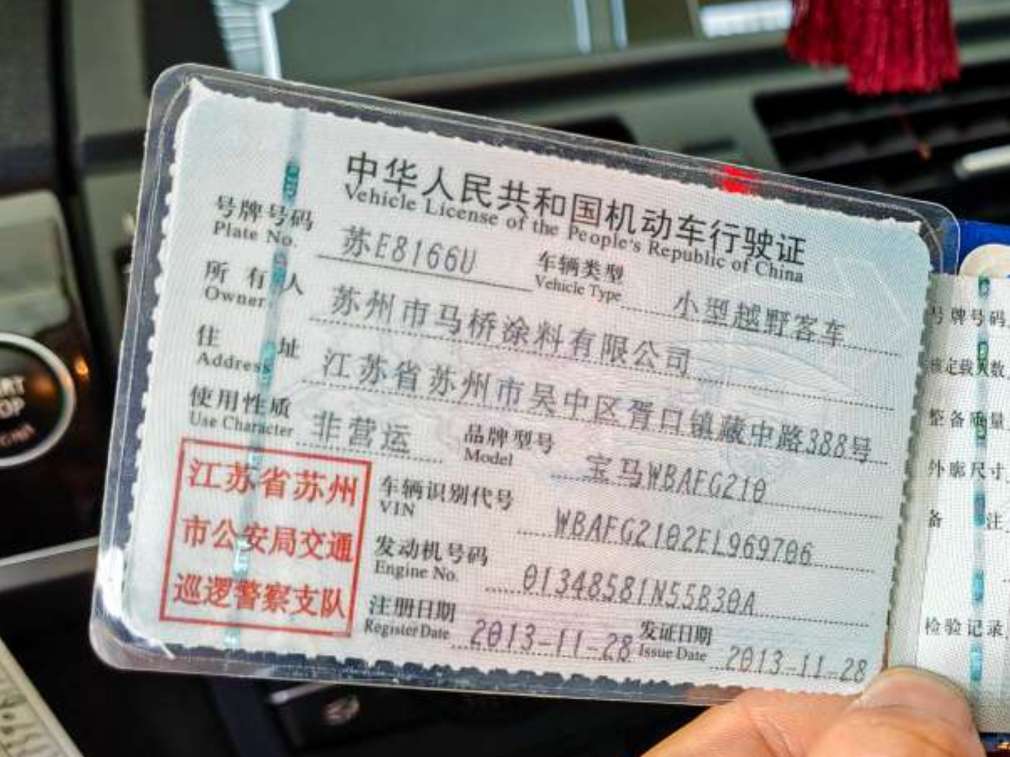 中华人民共和国机动车行驶证
Vehicle License of the People's Republic of China
号牌号码 苏E8166U 车辆类型 小型越野客车
Plate No. Vehicle Type
所有人 苏州市马桥涂料有限公司
Owner
住址 江苏省苏州市吴中区胥口镇藏中路388号
Address
使用性质 非营运 品牌型号 宝马WBAFG210
Use Character Model
江苏省苏州
市公安局交通
巡逻警察支队
车辆识别代号 WBAFG2102EL969706
VIN
发动机号码 01348581N55B30A
Engine No.
注册日期 2013-11-28 发证日期 2013-11-28
Register Date Issue Date
号牌号码
核定载人数
整备质量
外廓尺寸
备注
检验记录